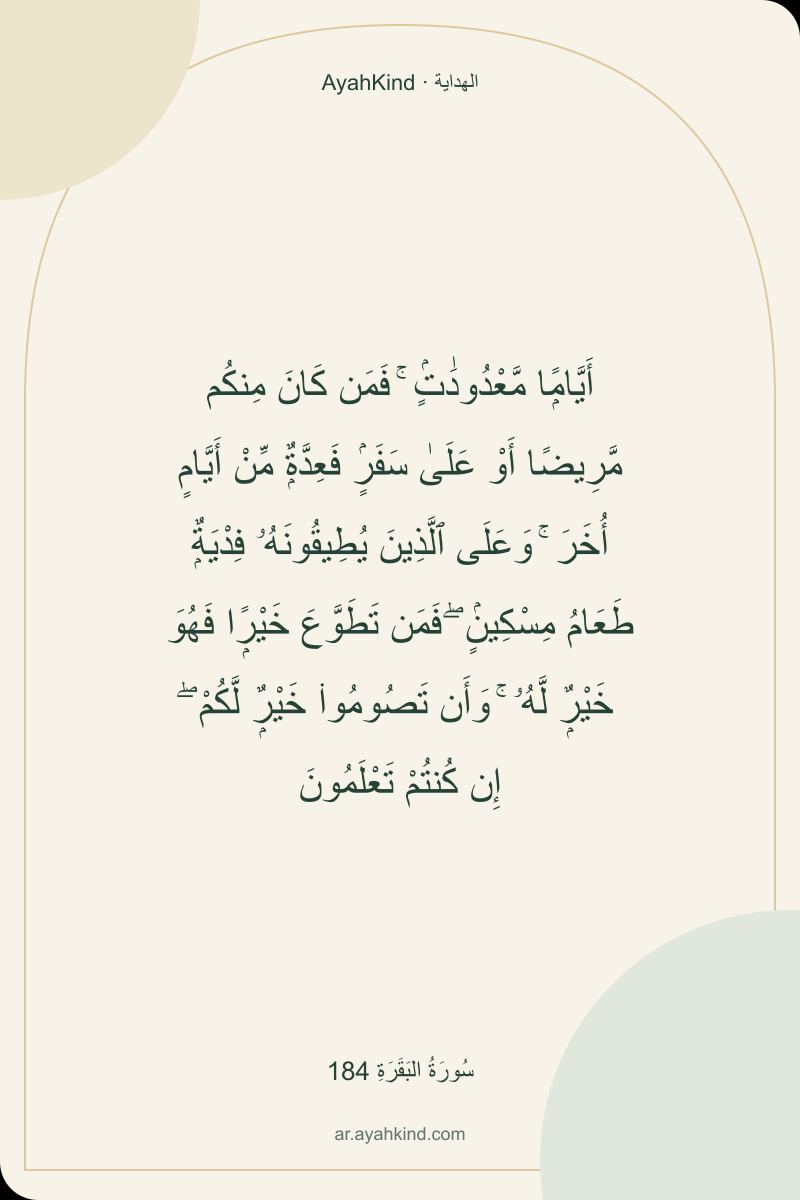 AyahKind · الهداية
أَيَّامًۭا مَّعْدُودَٰتٍۢ ۚ فَمَن كَانَ مِنكُم
مَّرِيضًا أَوْ عَلَىٰ سَفَرٍۢ فَعِدَّةٌۭ مِّنْ أَيَّامٍ
أُخَرَ ۚ وَعَلَى ٱلَّذِينَ يُطِيقُونَهُۥ فِدْيَةٌۭ
طَعَامُ مِسْكِينٍۢ ۖ فَمَن تَطَوَّعَ خَيْرًۭا فَهُوَ
خَيْرٌۭ لَّهُۥ ۚ وَأَن تَصُومُوا۟ خَيْرٌۭ لَّكُمْ ۖ
إِن كُنتُمْ تَعْلَمُونَ
سُورَةُ البَقَرَةِ 184
ar.ayahkind.com